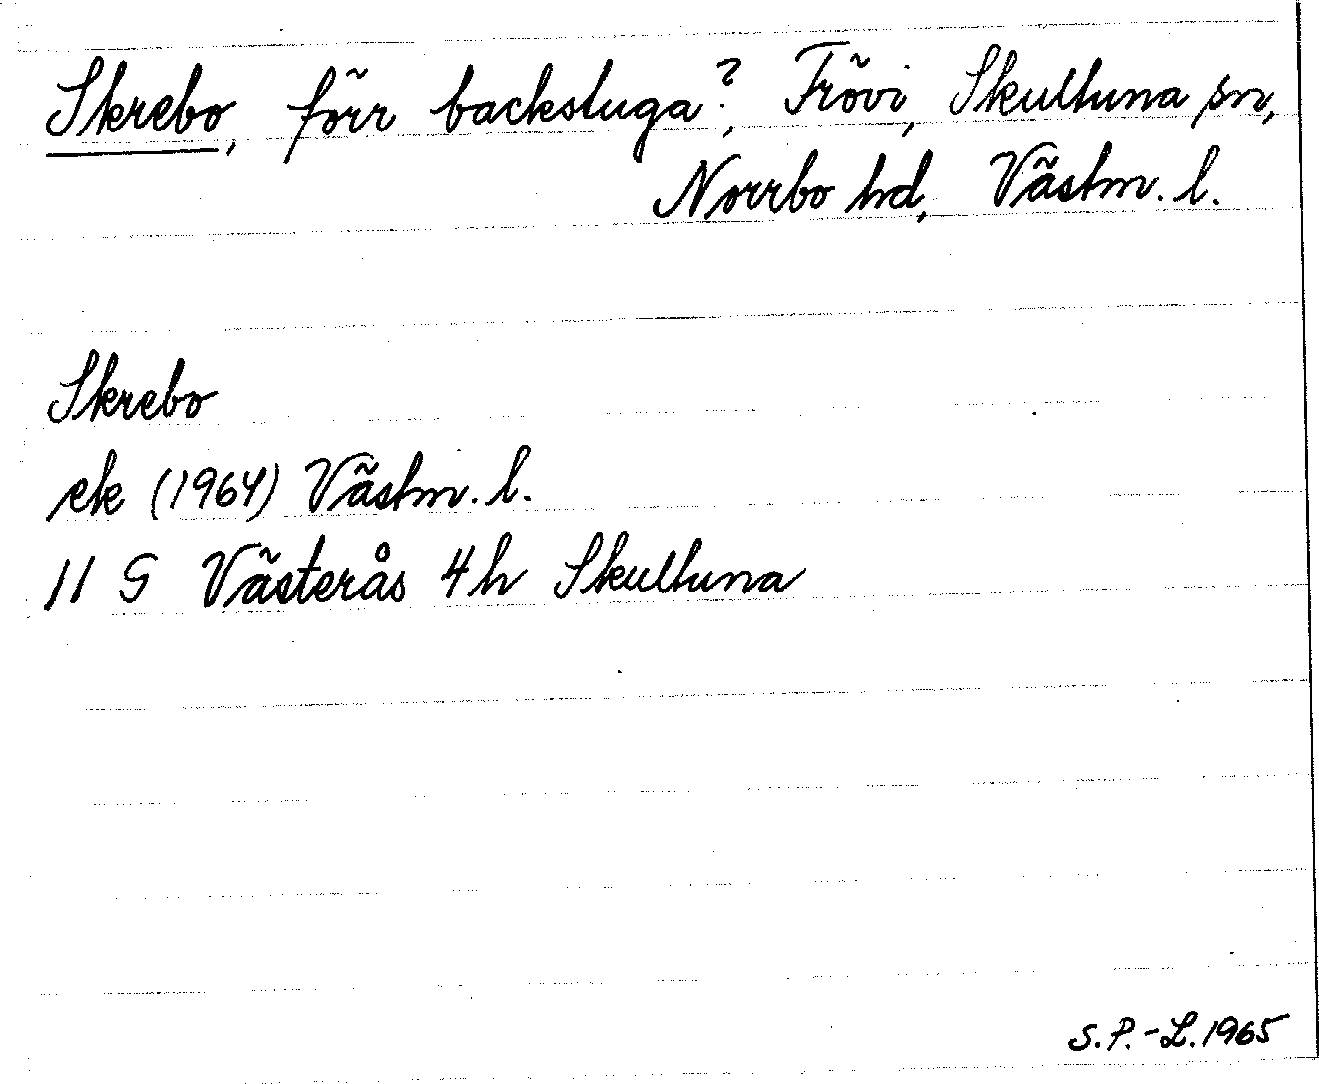 Skrebo, förr backstuga?, Frövi, Skultuna sn,
Norrbo hd, Västm. l.
Skrebo
ek (1964) Västm. l.
11 G Västerås 4h Skultuna
S.P.-L. 1965